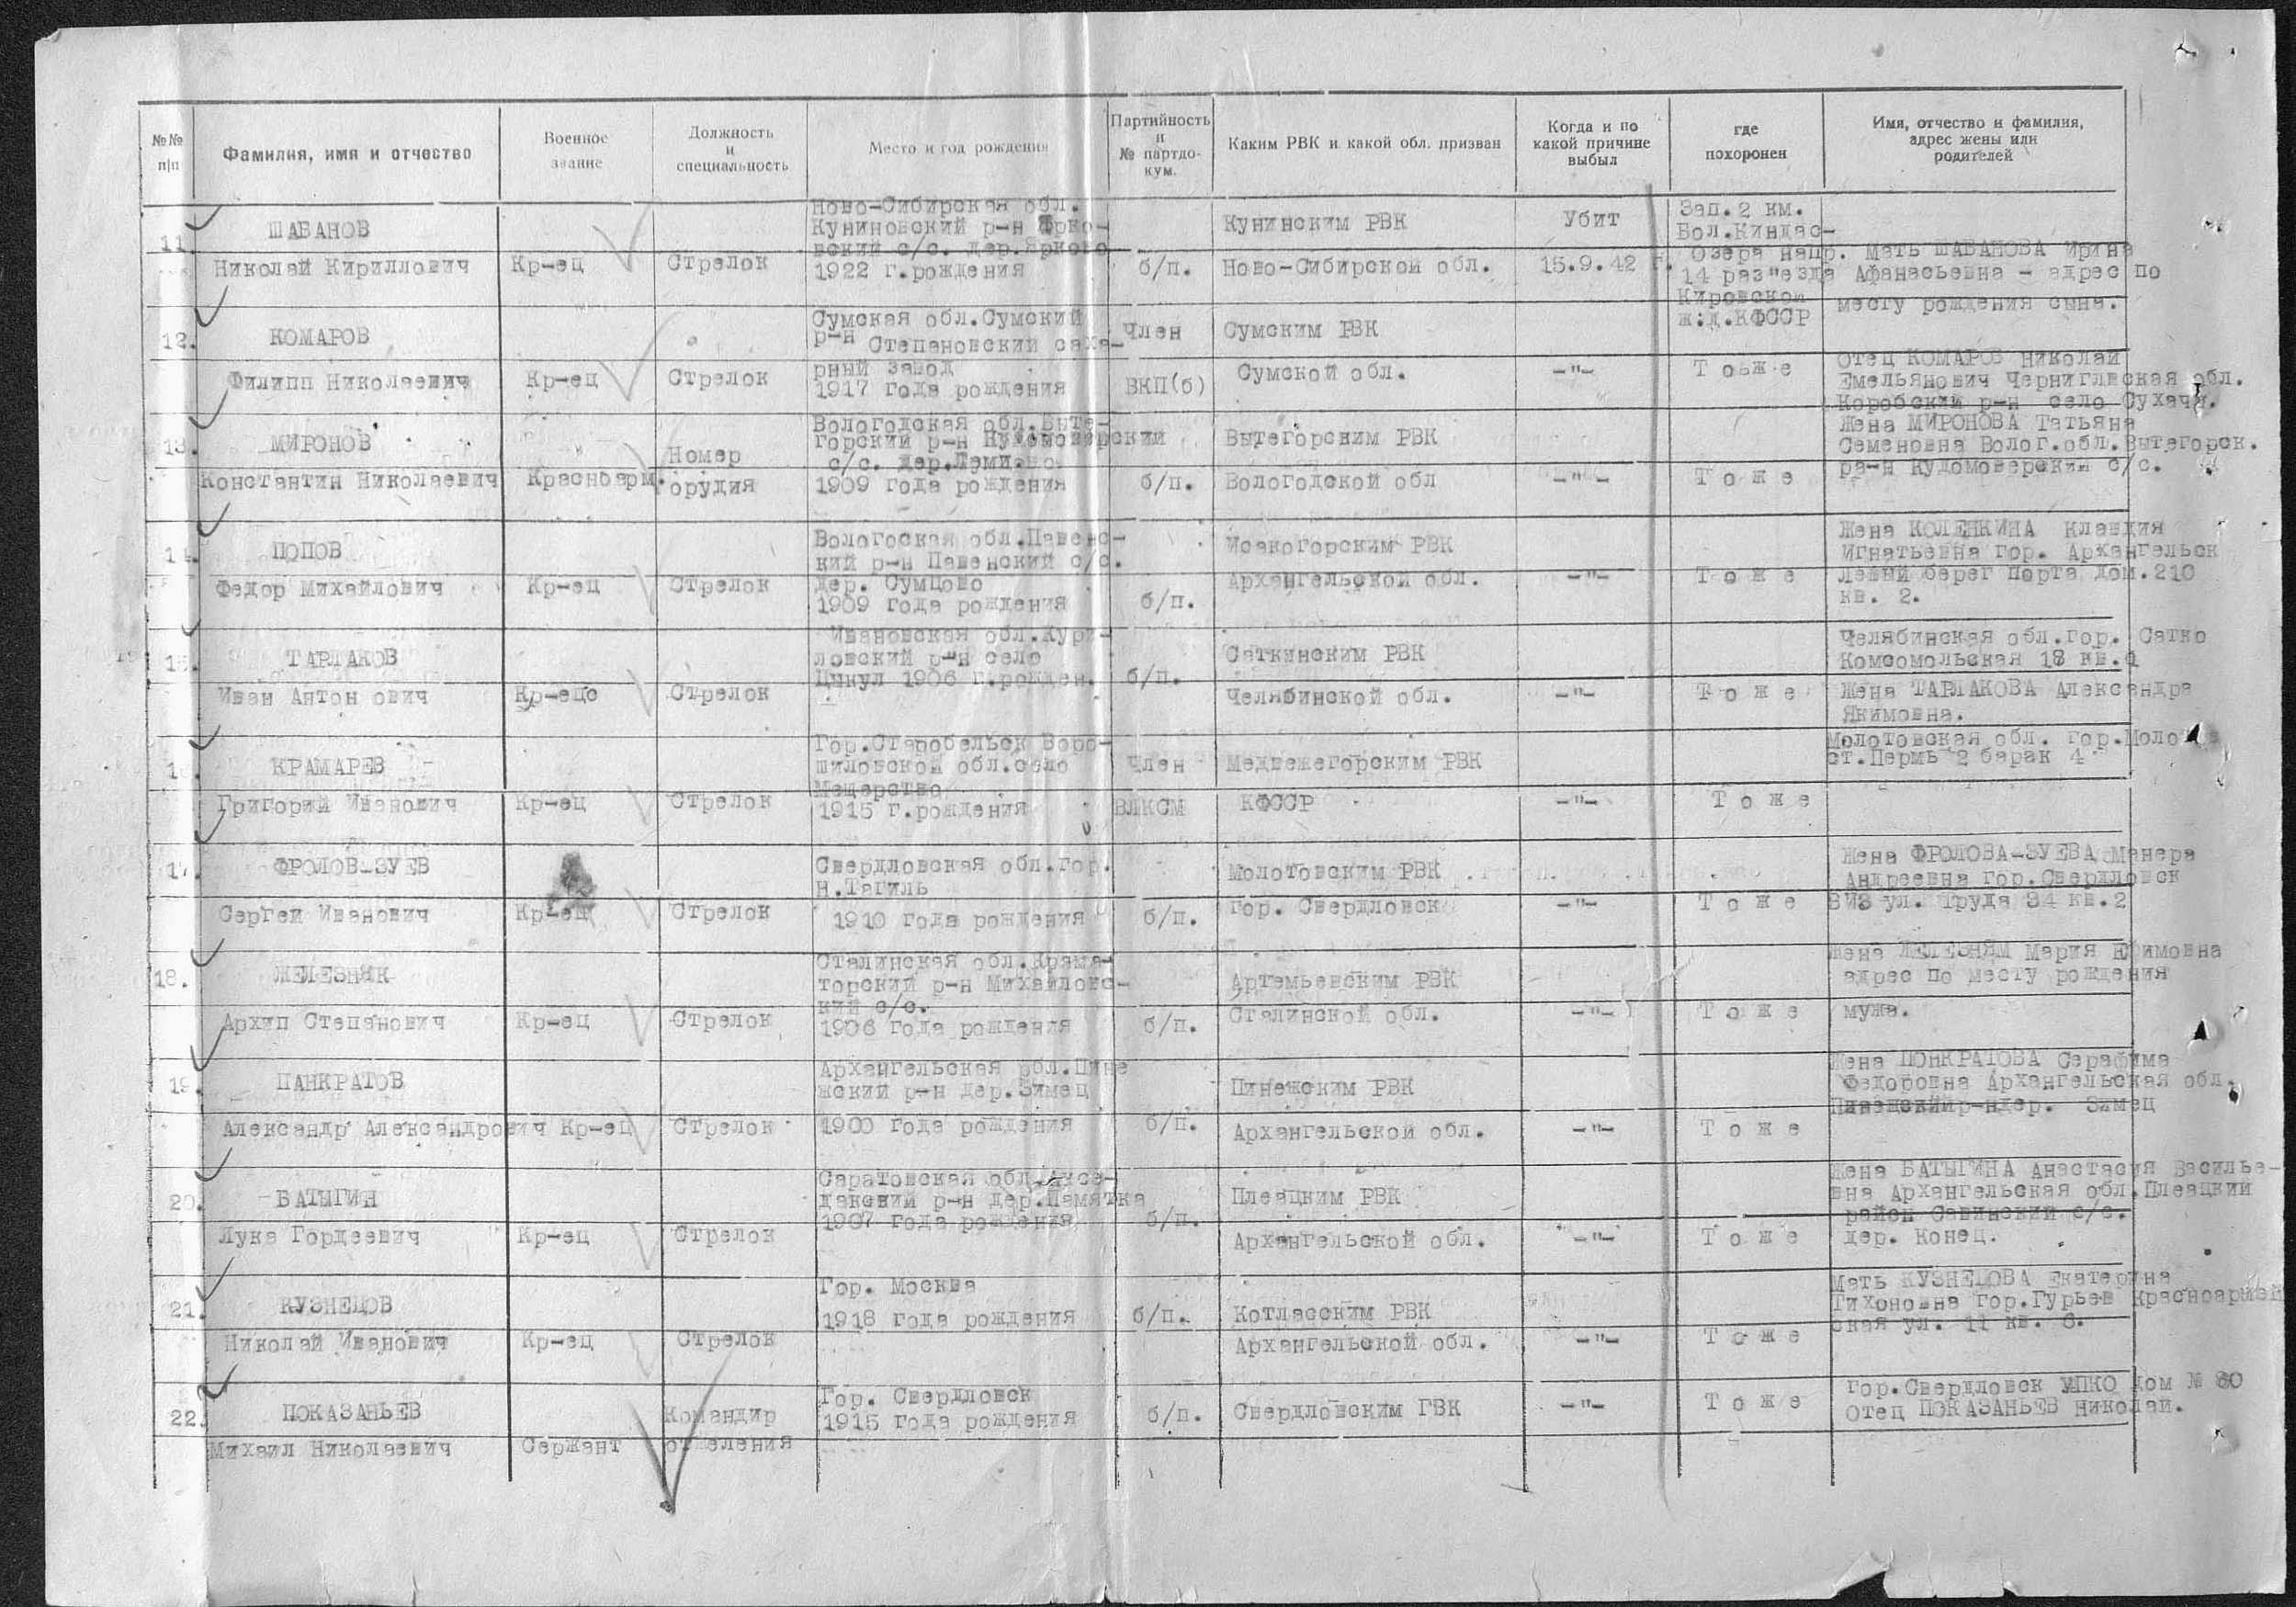 №№ п/п
Фамилия, имя и отчество
Военное звание
Должность и специальность
Место и год рождения
Партийность и № партдокум.
Каким РВК и какой обл. призван
Когда и по какой причине выбыл
где похоронен
Имя, отчество и фамилия, адрес жены или родителей
11.
ШАБАНОВ
Николай Кириллович
Кр-ец
Стрелок
Ново-Сибирская обл.
Куниновский р-н Ярко-
вский с/с. дер.Ярково
1922 г.рождения
б/п.
Кунинским РВК
Ново-Сибирской обл.
Убит
15.9.42 г.
Зап.2 км.
Бол.Киндас-
Озера напр.
14 раз"езда
Кировской
ж.д.КФССР
мать ШАБАНОВА Ирина
Афанасьевна - адрес по
месту рождения сына.
12.
КОМАРОВ
Филипп Николаевич
Кр-ец
Стрелок
Сумская обл.Сумский
р-н Степановский саха-
рный завод
1917 года рождения
Член
ВКП(б)
Сумским РВК
Сумской обл.
-"-
Т о ж е
Отец КОМАРОВ Николай
Емельянович Черниглвская обл.
Коробский р-н село Сухачи.
13.
МИРОНОВ
Константин Николаевич
Красноарм.
Номер
орудия
Вологодская обл.Выте-
горский р-н
с/с. дер.
1909 года рождения
б/п.
Вытегорским РВК
Вологодской обл
-"-
Т о ж е
Жена МИРОНОВА Татьяна
Семеновна Волог.обл.Вытегорск.
ра-н Кудомоверский с/с.
14.
ПОПОВ
Федор Михайлович
Кр-ец
Стрелок
Вологоская обл.Павенс-
кий р-н Павенский с/с.
дер. Сумцово
1909 года рождения
б/п.
Исакогорским РВК
Архангельской обл.
-"-
Т о ж е
Жена КОЛЕНКИНА Клавдия
Игнатьевна гор. Архангельск
Левый берег порта дом.210
кв. 2.
15.
ТАРЛАКОВ
Иван Антон ович
Кр-ецс
Стрелок
Ивановская обл.Кури-
ловский р-н село
Цинул 1906 г.рожден.
б/п.
Саткинским РВК
Челябинской обл.
-"-
Т о ж е
Челябинская обл.гор. Сатко
Комсомольская 18 кв.
Жена ТАРЛАКОВА Александра
Якимовна.
16.
КРАМАРЕВ
Григорий Иванович
Кр-ец
Стрелок
Гор.Старобельск Воро-
шиловской обл.село
Мещерство
1915 г.рождения
Член
ВЛКСМ
Медвежегорским РВК
КФССР
-"-
Т о ж е
Молотовская обл. гор.Молотов
ст.Пермь 2 барак 4
17.
ФРОЛОВ-ЗУЕВ
Сергей Иванович
Кр-ец
Стрелок
Свердловская обл.гор.
Н.Тагиль
1910 года рождения
б/п.
Молотовским РВК
гор. Свердловск
-"-
Т о ж е
Жена ФРОЛОВА-ЗУЕВА Манера
Андреевна гор.Свердловск
ВИЗ ул. Труда 34 кв.2
18.
ЖЕЛЕЗНЯК
Архип Степанович
Кр-ец
Стрелок
Сталинская обл.Крама-
торский р-н Михайловс-
кий с/с.
1906 года рождения
б/п.
Артемьевским РВК
Сталинской обл.
-"-
Т о ж е
Жена ЖЕЛЕЗНЯМ Мария Ефимовна
адрес по месту рождения
мужа.
19.
ПАНКРАТОВ
Александр Александрович
Кр-ец
Стрелок
Архангельская обл.Пине
жский р-н дер.Зимец
1900 года рождения
б/п.
Пинежским РВК
Архангельской обл.
-"-
Т о ж е
Жена ПОНКРАТОВА Серафима
Федоровна Архангельская обл.
Пинежскийр-ндер. Зимец
20.
БАТЫГИН
Лука Гордеевич
Кр-ец
Стрелок
Саратовская обл.Аксе-
дакский р-н дер.Памятка
1907 года рождения
б/п.
Плеацким РВК
Архангельской обл.
-"-
Т о ж е
Жена БАТЫГИНА Анастасия Василье-
вна Архангельская обл.Плеацкий
район Савинский с/с.
дер. Конец.
21.
КУЗНЕЦОВ
Николай Иванович
Кр-ец
Стрелок
Гор. Москва
1918 года рождения
б/п.
Котласским РВК
Архангельской обл.
-"-
Т о ж е
Мать КУЗНЕЦОВА Екатерина
Тихоновна гор.Гурьев Красноармей
ская ул. 11 кв. 6.
22.
ПОКАЗАНЬЕВ
Михаил Николаевич
Сержант
Командир
отделения
Гор. Свердловск
1915 года рождения
б/п.
Свердловским ГВК
-"-
Т о ж е
Гор.Свердловск УПКО дом № 80
Отец ПОКАЗАНЬЕВ Николай.